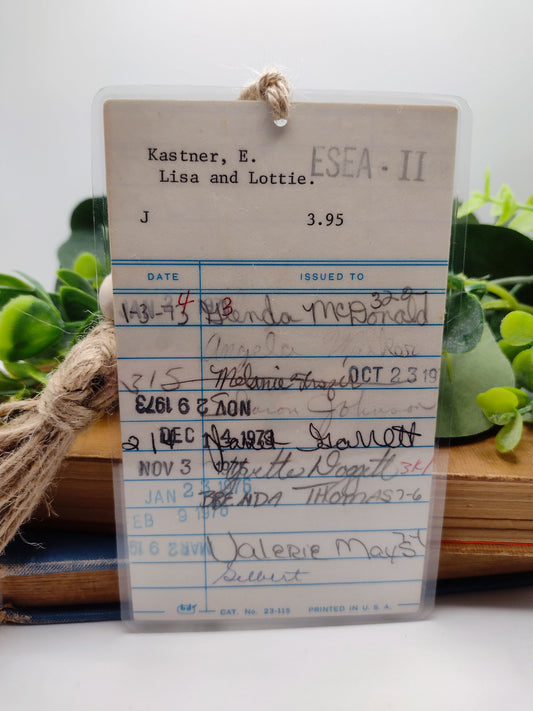 Kastner, E. ESEA - II
Lisa and Lottie.
J 3.95
DATE ISSUED TO
1-31-73 Glenda McDonald 32-9
Angela
315 Melanie OCT 23 19
NOV 29 1973 Sharon Johnson
214 DEC 4 1973 Janet Garrett
NOV 3 3K1
JAN 23 1976 BRENDA THOMAS 7-6
FEB 9 1976
MAR 29 Valerie Mays 7-4
Gilbert
CAT. No. 23-115 PRINTED IN U. S. A.